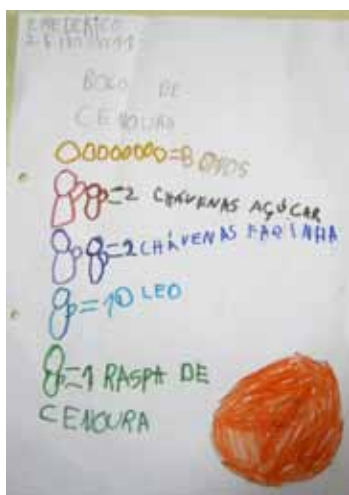 BOLO DE
CENOURA
=8 OVOS
=2 CHÁVENAS AÇÚCAR
=2 CHÁVENAS FARINHA
=1 OLEO
=1 RASPA DE
CENOURA